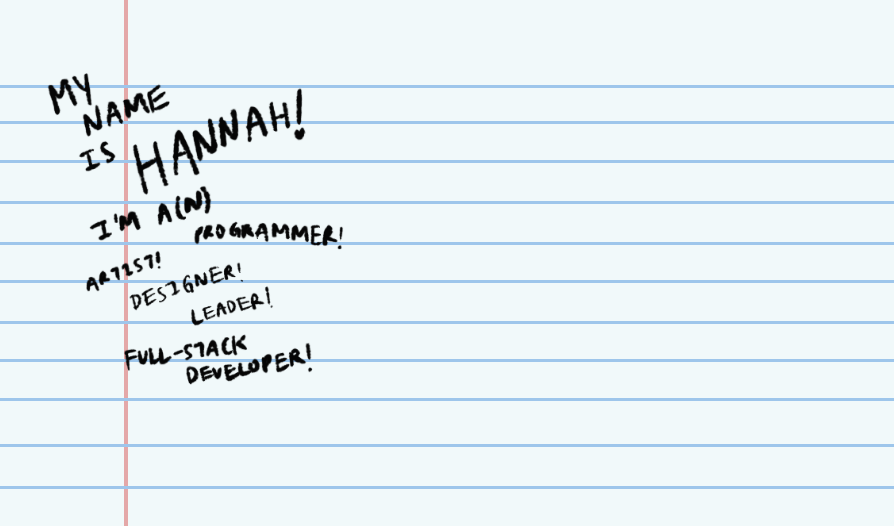 MY
NAME
IS HANNAH!
I'M A(N)
PROGRAMMER!
ARTIST!
DESIGNER!
LEADER!
FULL-STACK
DEVELOPER!